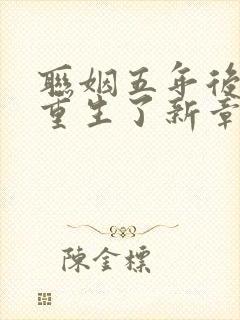 聯姻五年後
重生了新章
陳金標